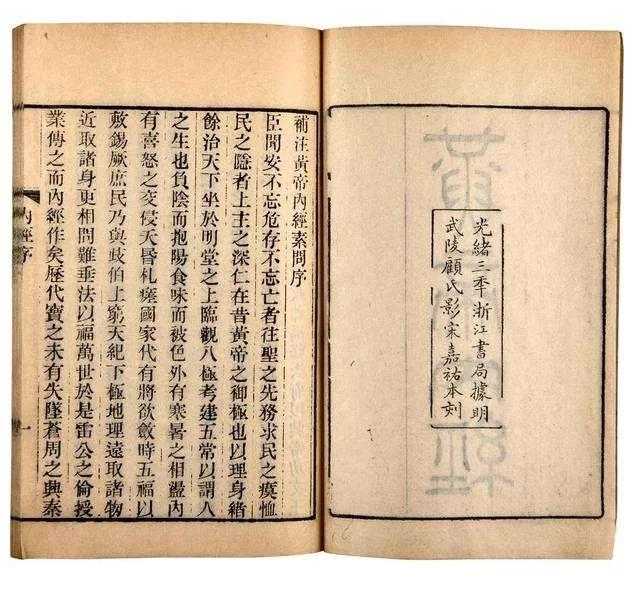 光緒三秊浙江書局據明
武陵顧氏影宋嘉祐本刻
補注黃帝內經素問序
臣聞安不忘危存不忘亡者往聖之先務求民之瘼恤
民之隱者上主之深仁在昔黃帝之御極也以理身緒
餘治天下坐於明堂之上臨觀八極考建五常以謂人
之生也負陰而抱陽食味而被色外有寒暑之相盪內
有喜怒之交侵夭昬札瘥國家代有將欲斂時五福以
敷錫厥庶民乃與歧伯上窮天紀下極地理遠取諸物
近取諸身更相問難垂法以福萬世於是雷公之倫授
業傳之而內經作矣歷代寶之未有失墜蒼周之興秦
內經序 一